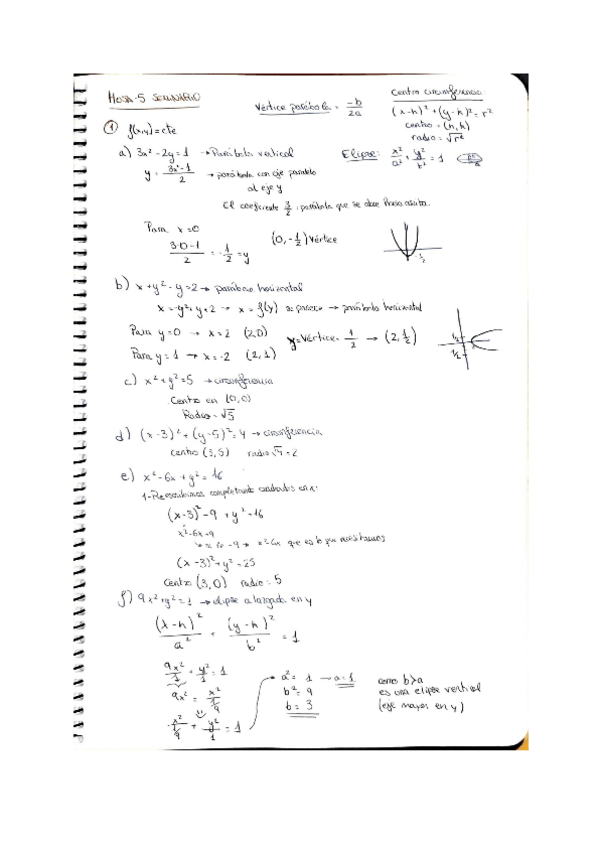 HOJA-5 SEMINARIO
Vértice parábola = -b/2a
Centro circunferencia
(x-h)² + (y-k)² = r²
centro = (h,k)
radio = √r²
① f(x,y)=cte
a) 3x² - 2y = 1 → Parábola vertical
Elipse: x²/a² + y²/b² = 1
y = 3x²-1/2 → parábola con eje paralelo
al eje y
El coeficiente 3/2 : parábola que se abre hacia arriba.
Para x=0
3·0-1/2 = -1/2 = y
(0, -1/2) Vértice
b) x+y²-y=2 → parábola horizontal
x = -y²+y+2 → x = f(y) → parábola horizontal
Para y=0 → x=2 (2,0)
y = Vértice = 1/2 → (2, 1/2)
Para y=1 → x=-2 (2,1)
c) x²+y²=5 → circunferencia
Centro en (0,0)
Radio = √5
d) (x-3)² + (y-5)² = 4 → circunferencia
centro (3,5) radio √4 = 2
e) x²-6x+y² = 16
1-Reescribimos completando cuadrados en x:
(x-3)²-9 + y² = 16
x²-6x+9
-9 → x²-6x que es lo que necesitamos
(x-3)²+y² = 25
Centro (3,0) radio = 5
f) 9x²+y²=1 → elipse alargada en y
(x-h)²/a² + (y-k)²/b² = 1
9x²/1 + y²/1 = 1
9x² = x²/1/9
x²/1/9 + y²/1 = 1
a² = 1 → a=1
b² = 9
b = 3
como b>a
es una elipse vertical
(eje mayor en y)